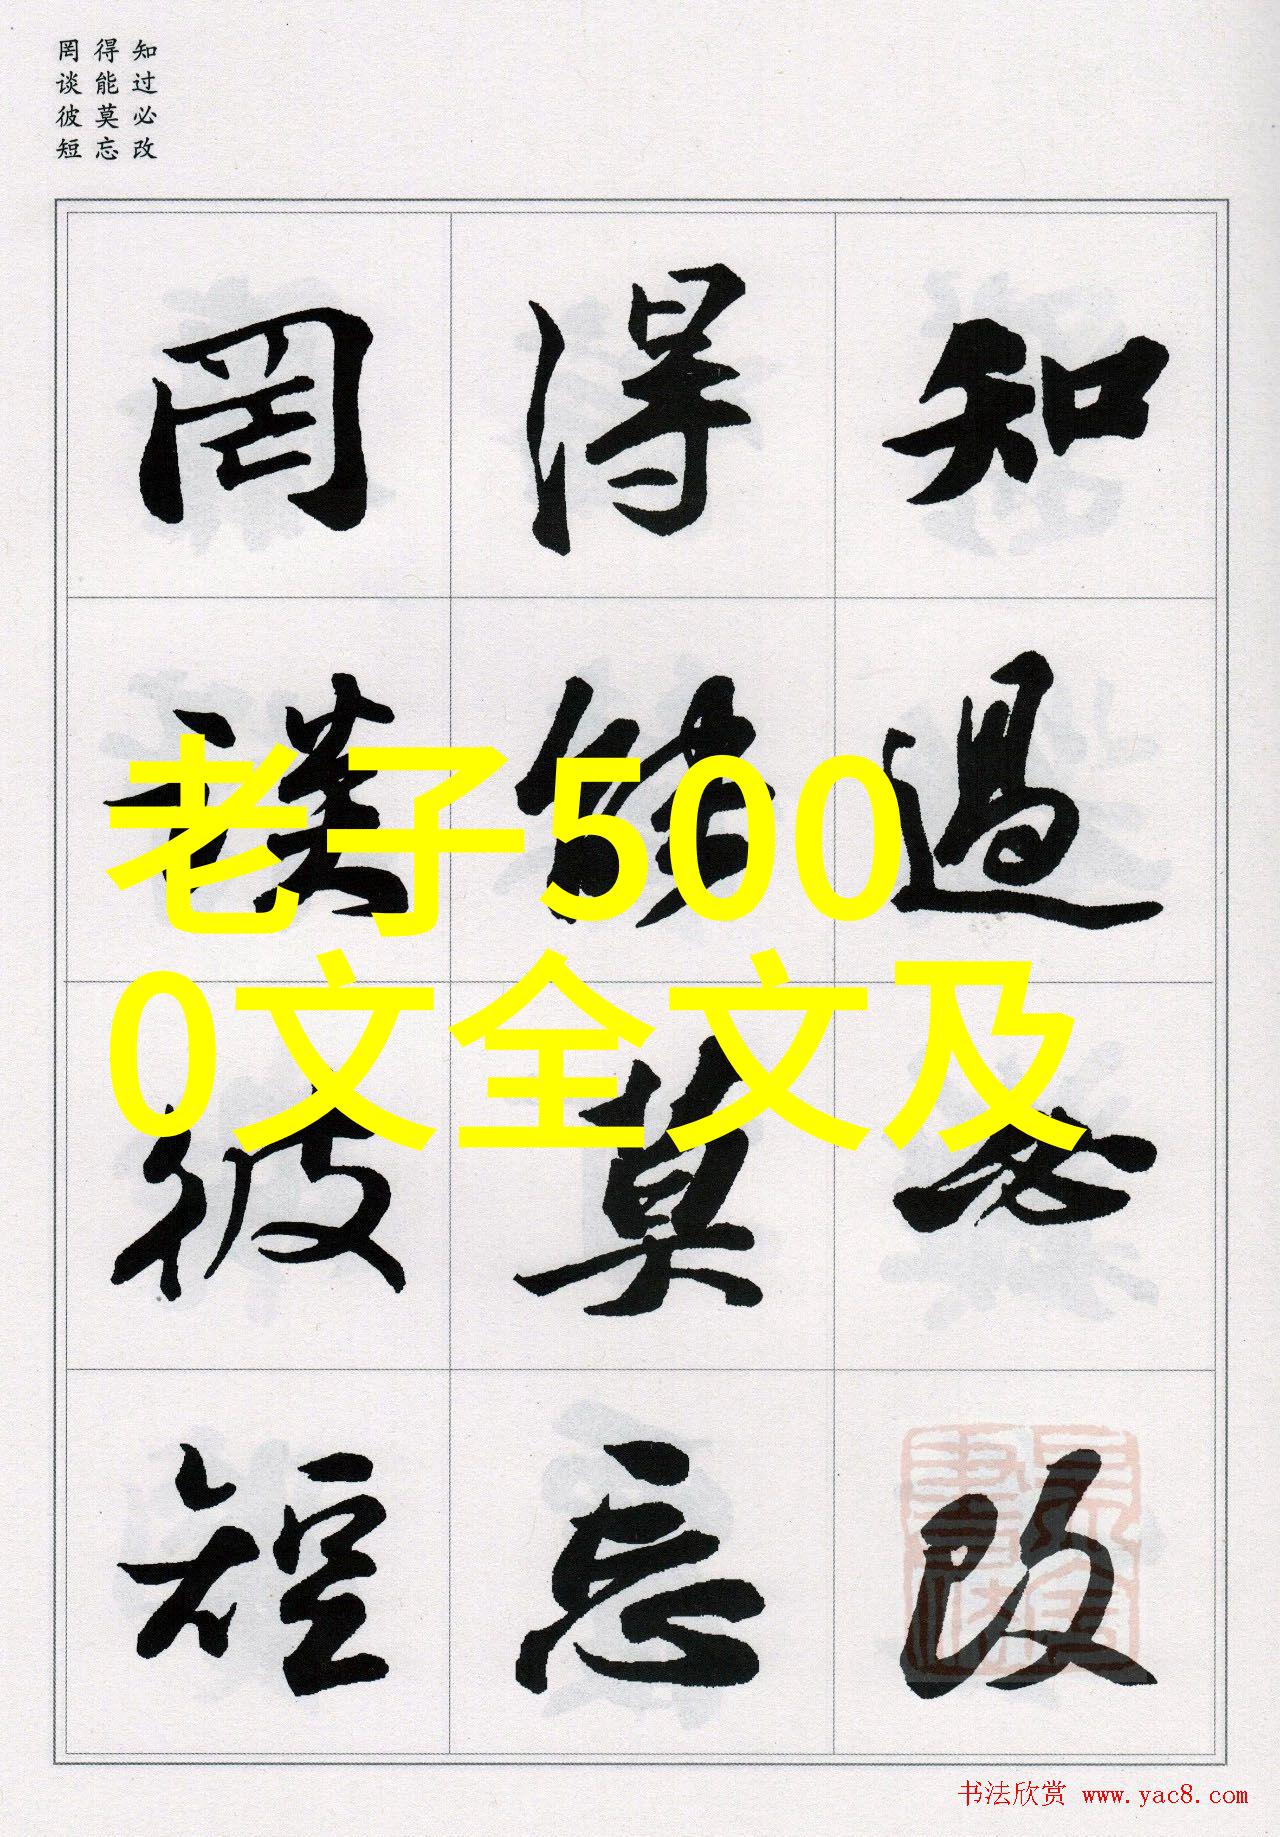 知过必改
得能莫忘
罔谈彼短
知過必改
得能莫忘
罔談彼短
老子500
0文全文及
书法欣赏 www.yac8.com